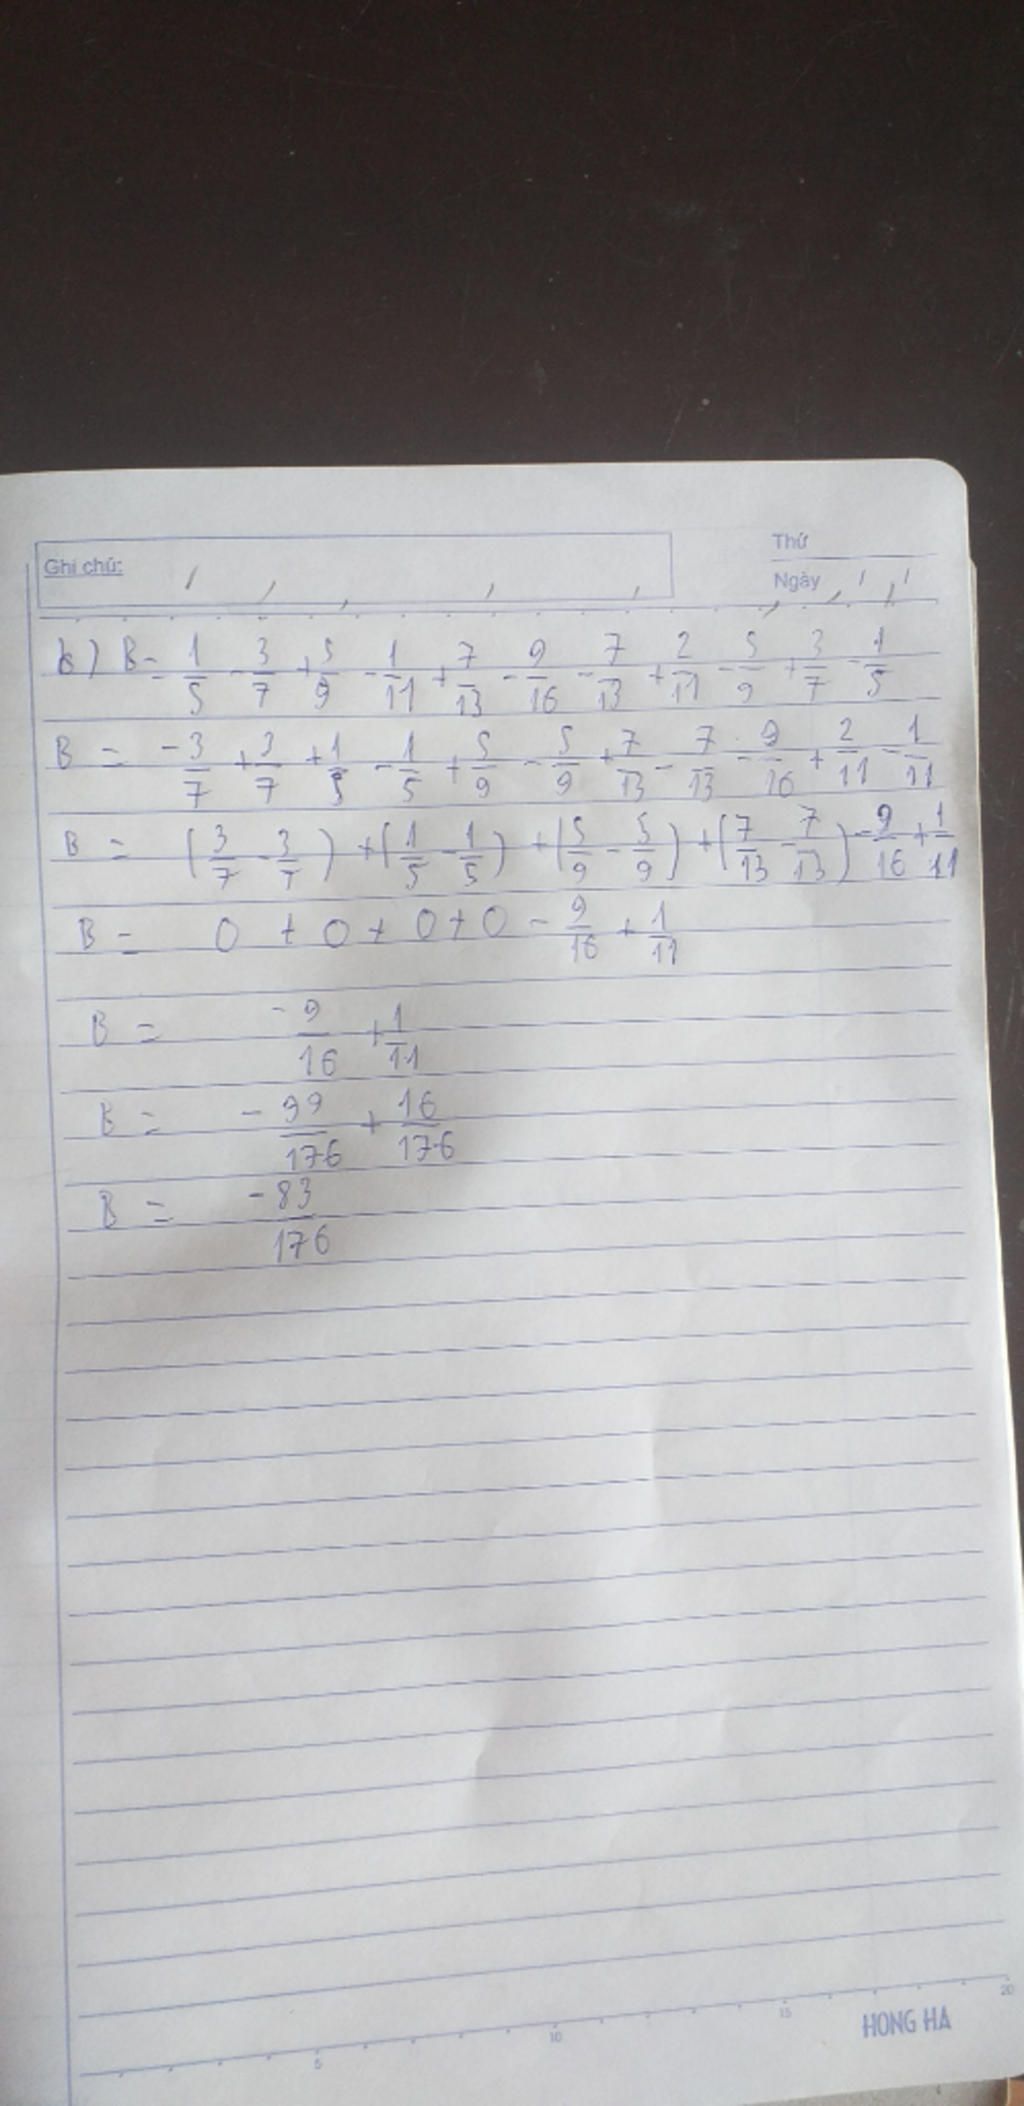 Ghi chú:
Thứ
Ngày
b) B = 1/5 - 3/7 + 5/9 - 1/11 + 7/13 - 9/16 - 7/13 + 2/11 - 5/9 + 3/7 - 1/5
B = - 3/7 + 3/7 + 1/5 - 1/5 + 5/9 - 5/9 + 7/13 - 7/13 - 9/16 + 2/11 - 1/11
B = (3/7 - 3/7) + (1/5 - 1/5) + (5/9 - 5/9) + (7/13 - 7/13) - 9/16 + 1/11
B = 0 + 0 + 0 + 0 - 9/16 + 1/11
B = -9/16 + 1/11
B = - 99/176 + 16/176
B = -83/176
5 10 15 20
HONG HA